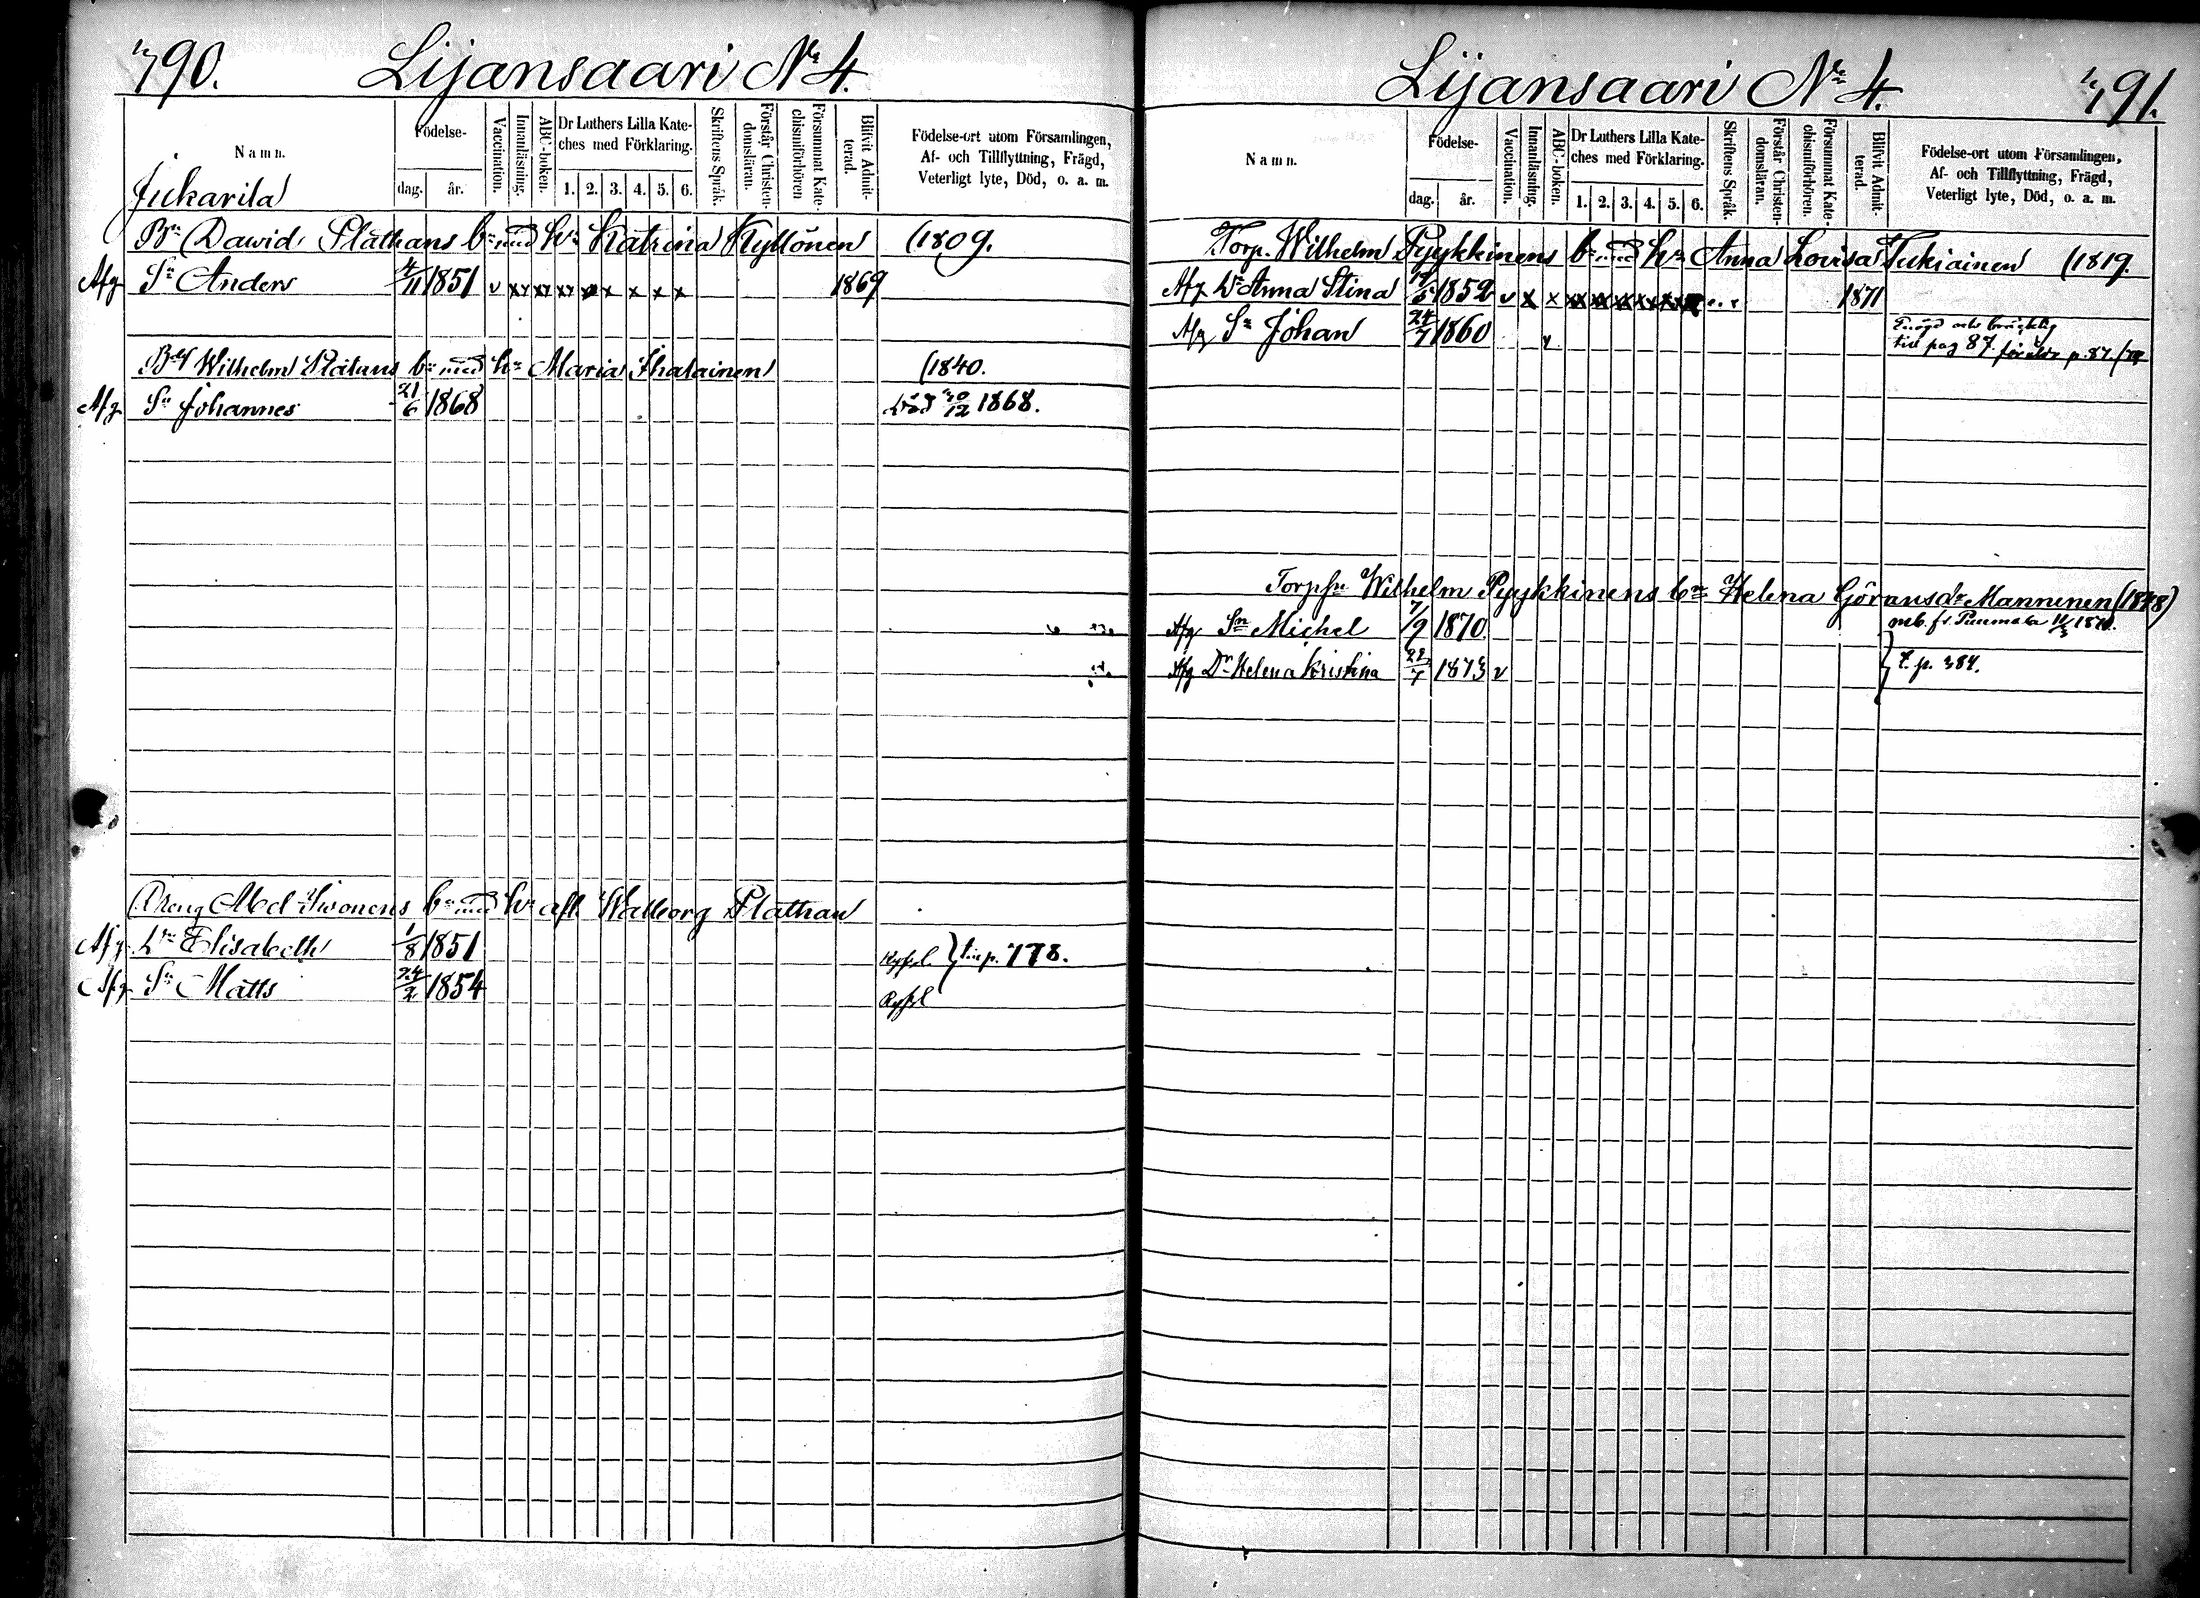 790. Lijansaari No 4.
Namn.
Födelse-
dag. år.
Vaccination.
Innanläsning.
ABC-boken.
Dr Luthers Lilla Kate-
ches med Förklaring.
1. 2. 3. 4. 5. 6.
Skriftens Språk.
Förstår Christen-
domsläran.
Försummat Kate-
chismiförhören
Blifvit Admit-
terad.
Födelse-ort utom Församlingen,
Af- och Tillflyttning, Frägd,
Veterligt lyte, Död, o. a. m.
Jukarila
Bn Dawid Plathans bn med hu Katrina Kyllönen (1809.
Afg Sn Anders 4/11 1851 v x x x x x x x x x 1869
Wilhelm Platans bn med hu Maria Ihalainen (1840.
Afg Sn Johannes 21/6 1868 Död 30/12 1868.
Dreng Md Siwonens bn med hu afl. Walborg Plathan
Afg Dr Elisabeth 1/8 1851 } p. 778.
Afg Sn Matts 24/2 1854
Lijansaari No 4. 791.
Namn.
Födelse-
dag. år.
Vaccination.
Innanläsning.
ABC-boken.
Dr Luthers Lilla Kate-
ches med Förklaring.
1. 2. 3. 4. 5. 6.
Skriftens Språk.
Förstår Christen-
domsläran.
Försummat Kate-
chismiförhören.
Blifvit Admit-
terad.
Födelse-ort utom Församlingen,
Af- och Tillflyttning, Frägd,
Veterligt lyte, Död, o. a. m.
Torp. Wilhelm Pyykkinens bn med hu Anna Lovisa Tukiainen (1819.
Afg Dr Anna Stina 1852 v x x x x x x x x 1871
Afg Sn Johan 24/7 1860
pag 87. p. 87
Torpsn Wilhelm Pyykkinens bn Helena Göransdr Manninen (1848)
Afg Sn Michel 7/9 1870. mb. fr. Puumala
Afg Dr Helena Kristina 22/7 1873 v } t. p. 384.